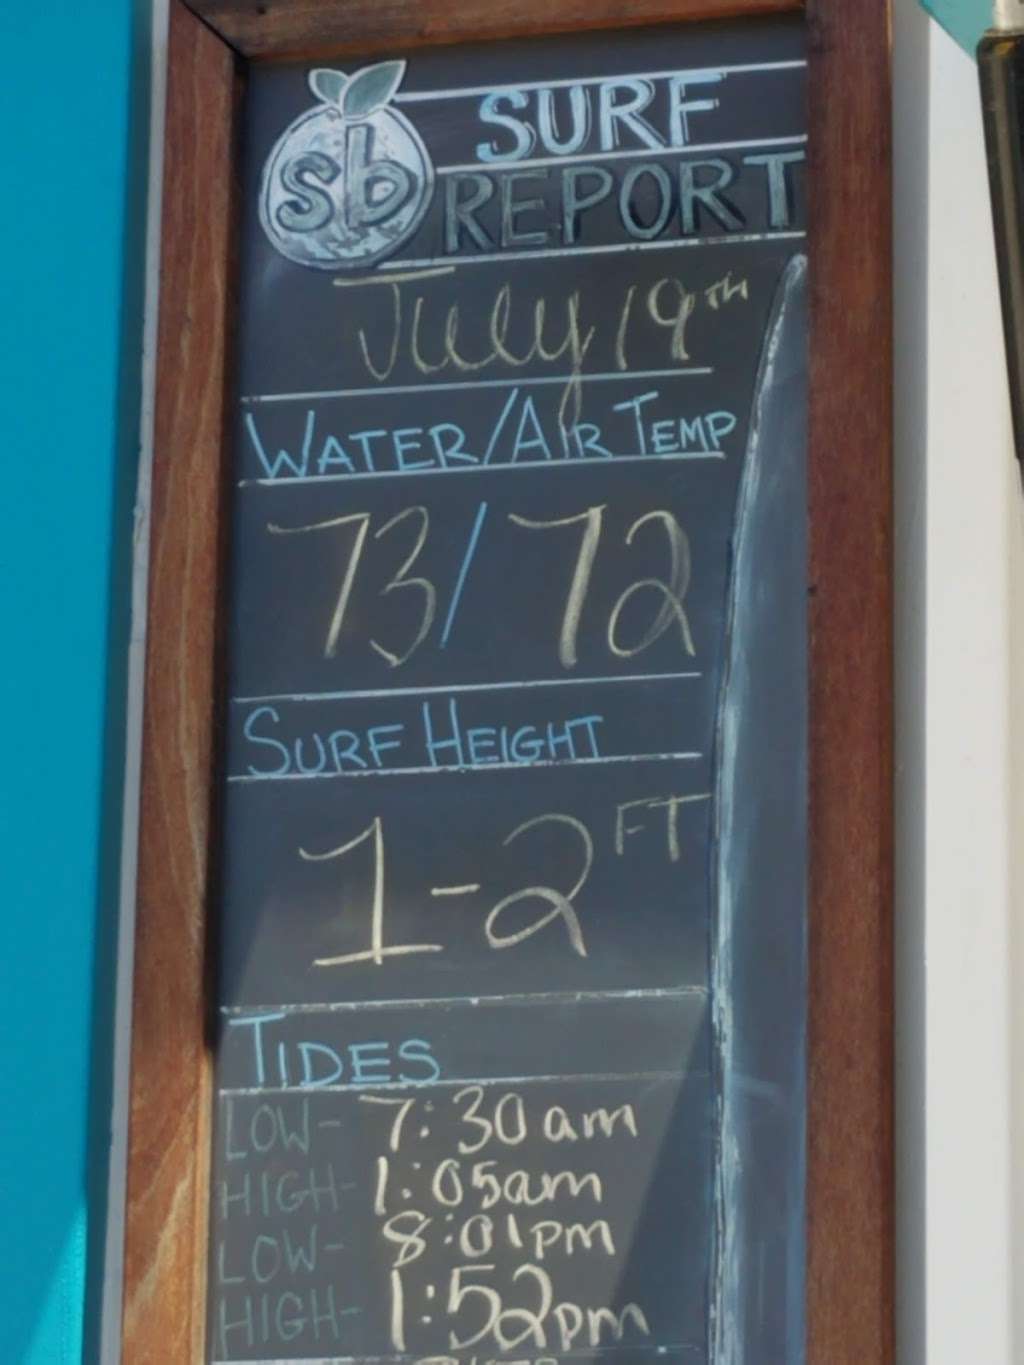 sb
SURF
REPORT
July 19th
WATER/AIR TEMP
73/72
SURF HEIGHT
1-2 FT
TIDES
LOW- 7:30am
HIGH- 1:05am
LOW- 8:01pm
HIGH- 1:52pm